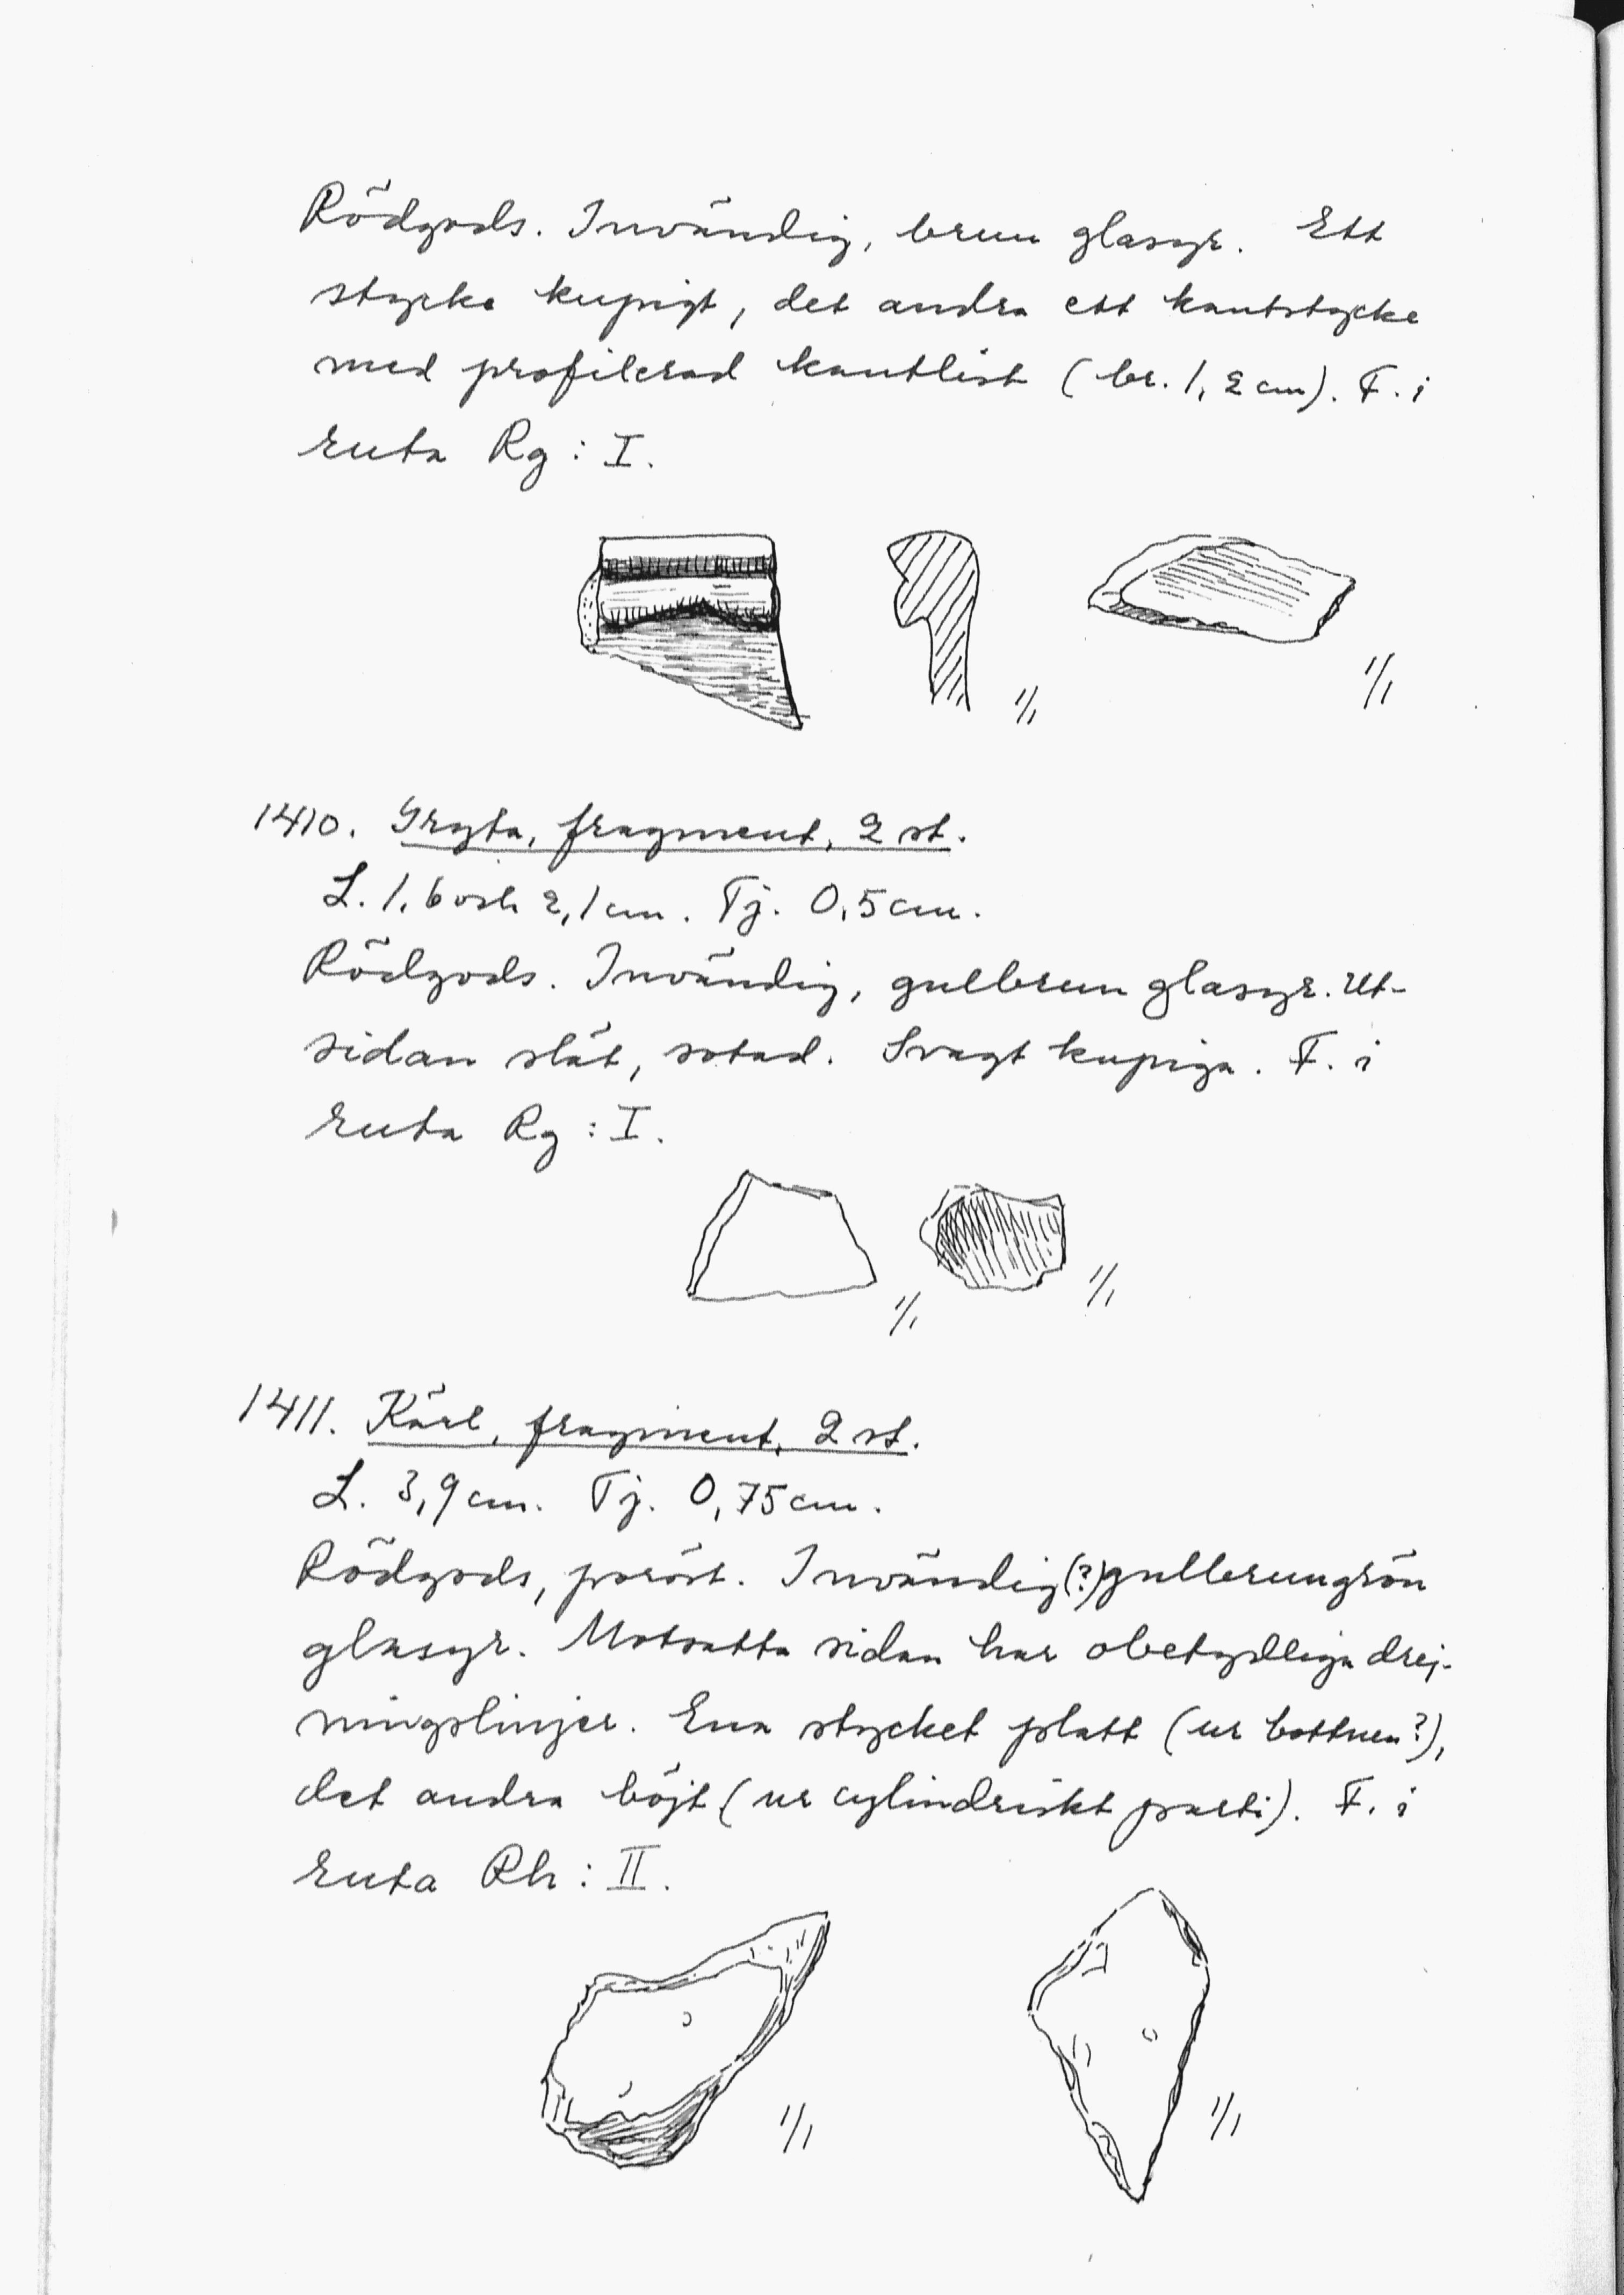 Rödgods. Invändig, brun glasyr. Ett
stycke kupigt, det andra ett kantstycke
med profilerad kantlist (br. 1,2 cm). F. i
ruta Rg : I.
1/1
1/1
1410. Gryta, fragment, 2 st.
L. 1,6 och 2,1 cm. Tj. 0,5 cm.
Rödgods. Invändig, gulbrun glasyr. Ut-
sidan slät, sotad. Svagt kupiga. F. i
ruta Rg : I.
1/1
1/1
1411. Kärl, fragment, 2 st.
L. 3,9 cm. Tj. 0,75 cm.
Rödgods, poröst. Invändig (?) gulbrungrön
glasyr. Motsatta sidan har obetydliga drej-
ningslinjer. Ena stycket platt (ur bottnen?),
det andra böjt (ur cylindriskt parti). F. i
ruta Rh : II.
1/1
1/1